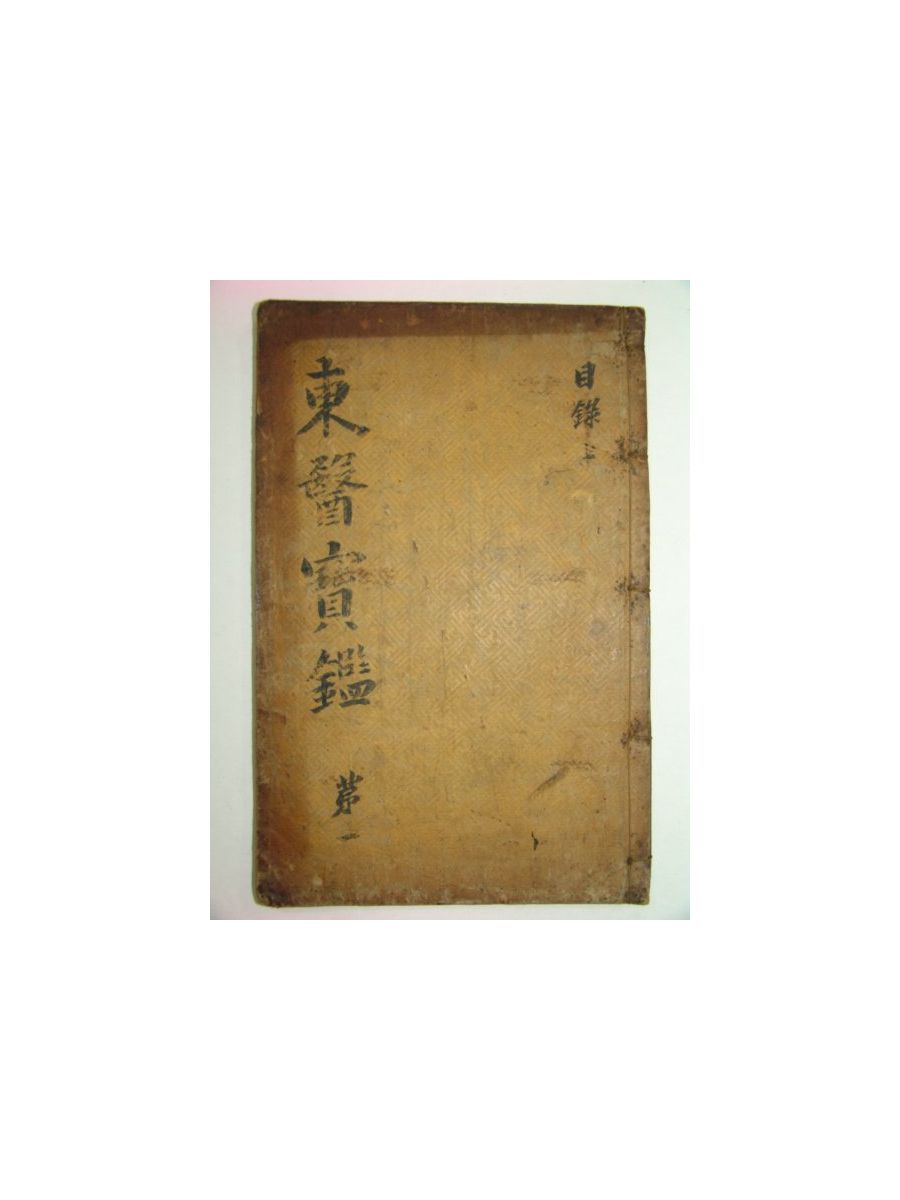 目錄上
東醫寶鑑 第一